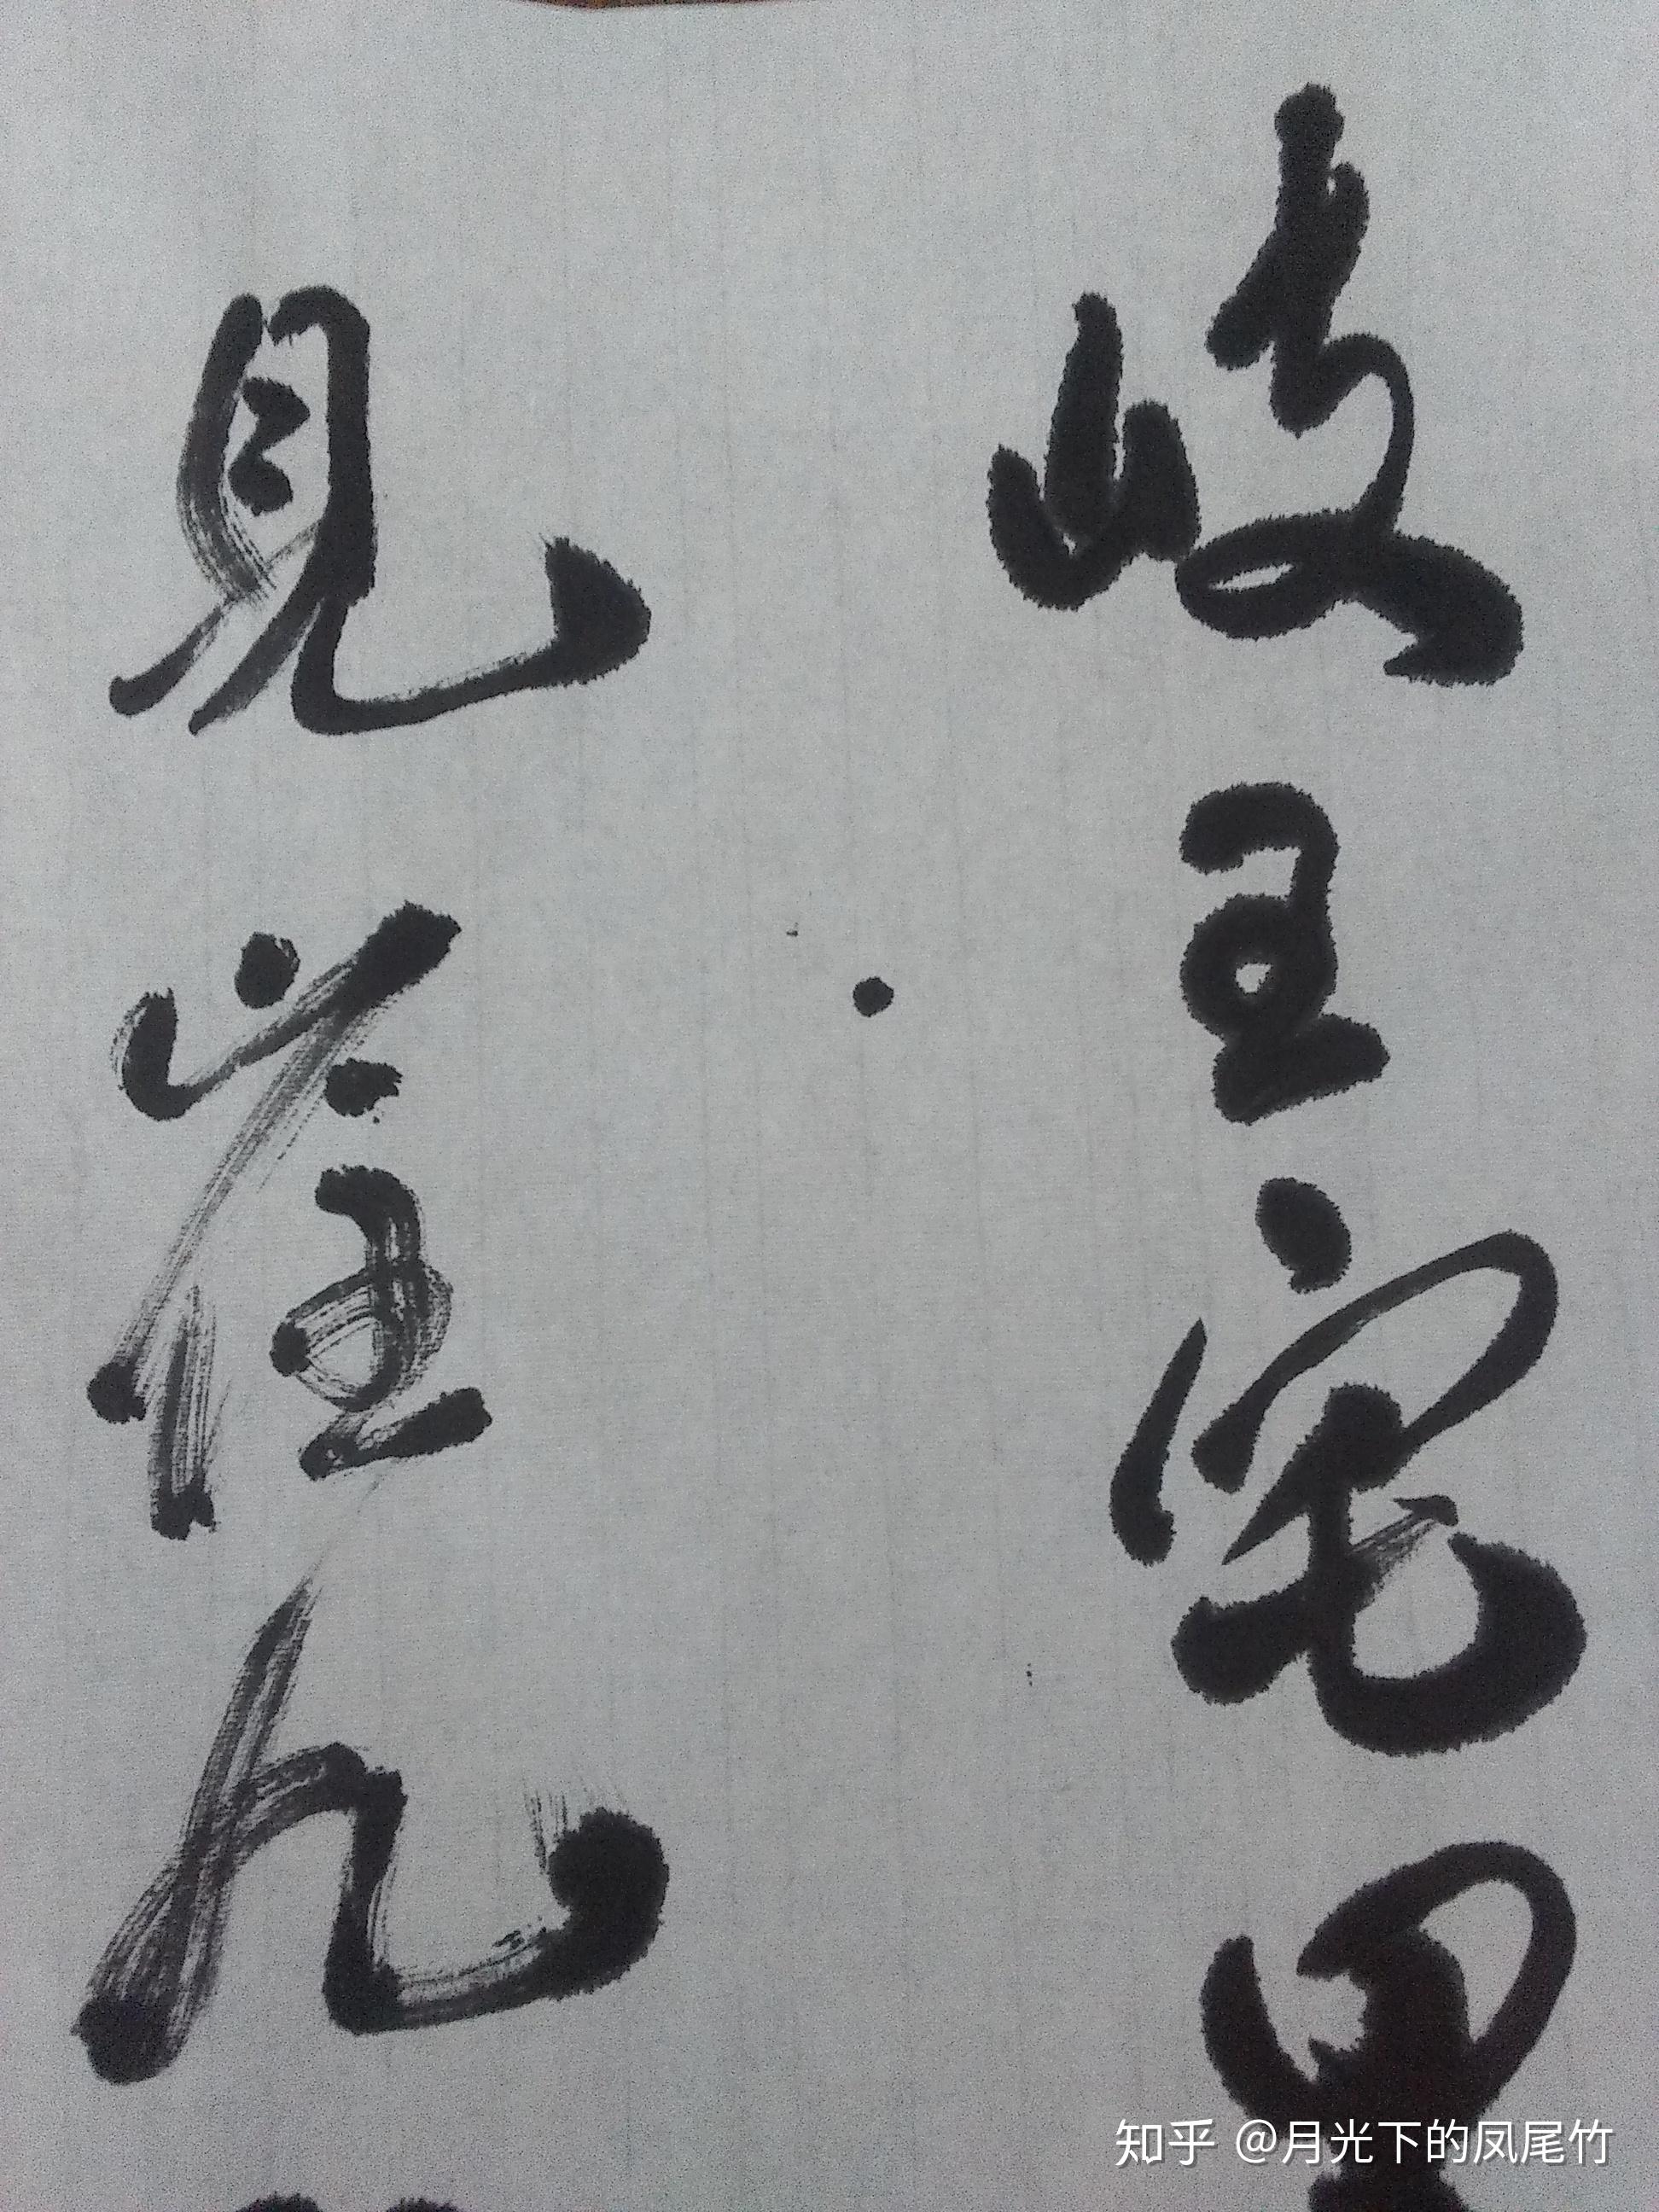 岐王宅里
見崔九
知乎 @月光下的凤尾竹